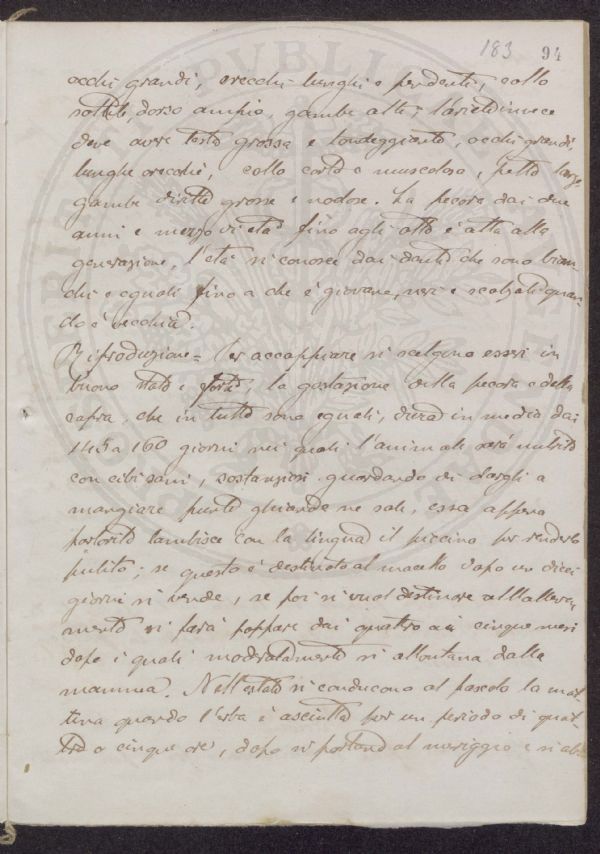 183 94
occhi grandi, orecchi lunghi e pendenti, collo
sottile, dorso ampio, gambe alte; l'ariete invece
deve avere testa grossa e tondeggiante, occhi grandi
lunghe orecchie, collo corto e muscoloso, petto largo
gambe diritte grosse e nodose. La pecora dai due
anni e mezzo di età fino agli otto è atta alla
generazione, l'età si conosce dai denti che sono bian-
chi e eguali fino a che è giovane, neri e scalzati quan-
do è vecchia.
Riproduzione = Per accoppiare si scelgono esseri in
buono stato e forti; la gestazione della pecora e della
capra, che in tutto sono eguali, dura in media dai
145 a 160 giorni nei quali l'animale sarà nutrito
con cibi sani, sostanziosi guardando di dargli a
mangiare punto ghiande ne sale, essa appena
partorito lambisce con la lingua il piccino per renderlo
pulito; se questo è destinato al macello dopo un dieci
giorni si vende, se poi si vuol destinare all'alleva-
mento si farà poppare dai quattro ai cinque mesi
dopo i quali moderatamente si allontana dalla
mamma. Nell'estate si conducono al pascolo la mat-
tina quando l'erba è asciutta per un periodo di quat-
tro o cinque ore, dopo si portano al meriggio e si